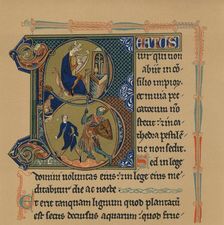 BEATUS
vir qui non
abiit in con
silio impior
et in via pec
catorum non
stetit: et in ca
thedra pestile
ne non sedit.
Sed in lege
domini voluntas eius: et in lege eius me
ditabitur die ac nocte
Et erit tanquam lignum quod plantatum
est secus decursus aquarum: quod fruc